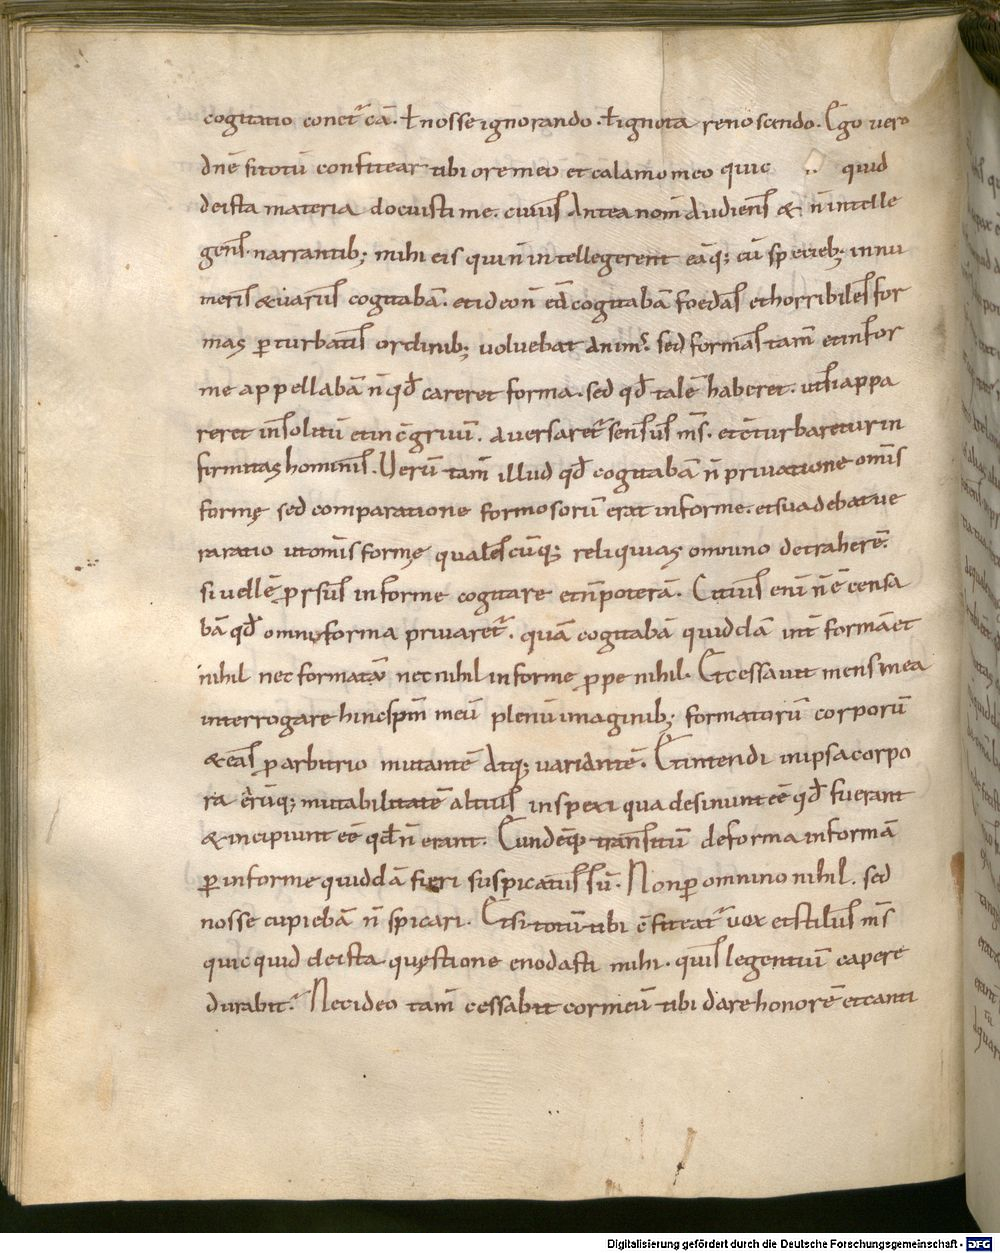 cogitatio conet᷑ eā. ł nosse ignorando. ł ignota renoscendo. Ego vero
dn̄e si totū confitear tibi ore meo et calamo meo quic quid
de ista materia docuisti me. cuiuſ Antea nom̄ Audienſ & n̄ intelle
genſ. narrantib; mihi eis qui n̄ intellegerent eāq; cū sp̄ eieb; innu
meriſ & uariiſ cogitabā. et ideo n̄ eā cogitabā foedaſ et horribileſ for
mas ꝑturbatiſ ordinib; uoluebat Anim᷒. sed formaſ tam̄ et infor
me appellabā n̄ qđ careret forma. sed qđ talē haberet. ut ſi appa
reret inſolitū et incc̄gruū. aversaret᷑ senſuſ mſ̄. et cc̄turbaretur in
firmitas hominiſ. Uerū tam̄ illud qđ cogitabā n̄ privatione om̄is
formę sed comparatione formosorū erat informe. et suadebat ue
ra ratio ut om̄is formę qualeſcūq; reliquias omnino detraherē.
si uellē ꝓrsuſ informe cogitare et n̄ poterā. Citiuſ eni n̄ ē censa
bā qđ omni forma privaret᷑. quā cogitabā quiddā int̄ formā et
nihil nec formatā nec nihil informe ꝓpe nihil. Et cessavit mens mea
interrogare hinc spm̄ meū plenū imaginib; formatorū corporū
& eaſ ꝑ arbitrio mutantē Atq; variantē. Et intendi in ipsa corpo
ra erūq; mutabilitatē altiuſ inspexi qua desinunt eē qđ fuerant
& incipiunt eē qđ n̄ erant. Eundēq; tranſitū de forma in formā
ꝑ informe quiddā fieri suspicatuſ sū. Non ꝑ omnino nihil. sed
nosse cupiebā n̄ sp̄icari. Et si totū tibi c̄fiteat᷑ vox et stiluſ mſ̄
quicquid de ista quęstione enodasti mihi. quiſ legentiū capere
durabit᷑. Nec ideo tam̄ cessabit cor meū tibi dare honorē et canti
Digitalisierung gefördert durch die Deutsche Forschungsgemeinschaft - DFG